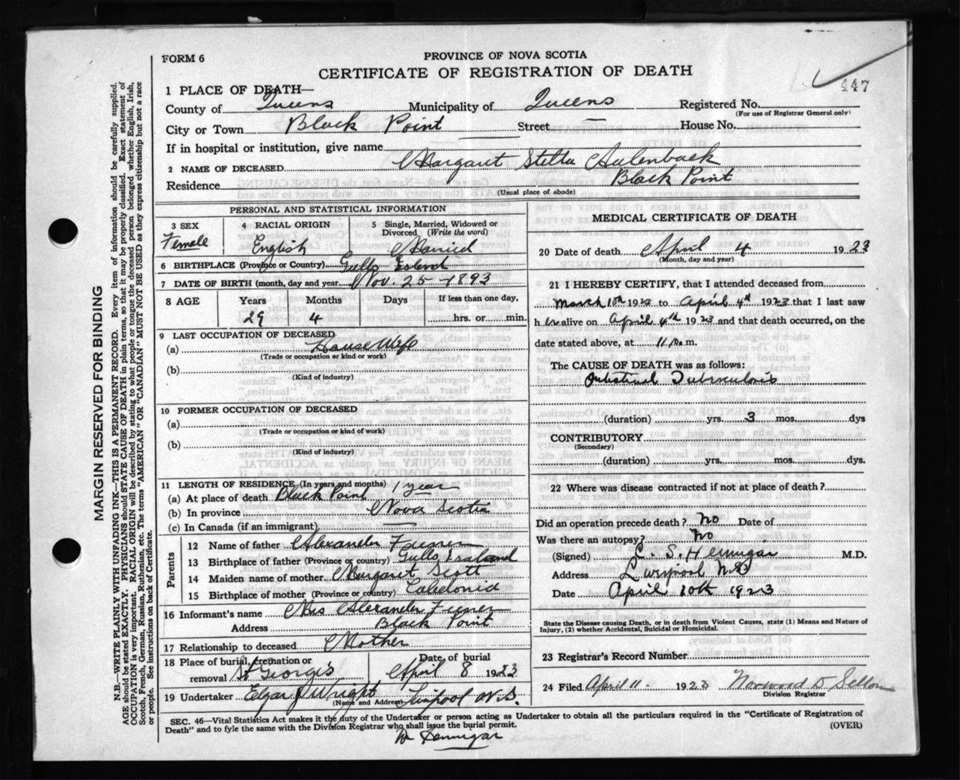 FORM 6
PROVINCE OF NOVA SCOTIA
CERTIFICATE OF REGISTRATION OF DEATH
447
1 PLACE OF DEATH—
County of Queens Municipality of Queens Registered No.
(For use of Registrar General only)
City or Town Black Point Street — House No.
If in hospital or institution, give name
2 NAME OF DECEASED Margaret Stella Aulenback
Residence Black Point
(Usual place of abode)
PERSONAL AND STATISTICAL INFORMATION
3 SEX 4 RACIAL ORIGIN 5 Single, Married, Widowed or Divorced (Write the word)
Female English Married
6 BIRTHPLACE (Province or Country) Gulls Island
7 DATE OF BIRTH (month, day and year) Nov. 25 - 1893
8 AGE Years Months Days If less than one day,
29 4 hrs. or min.
9 LAST OCCUPATION OF DECEASED
(a) Housewife
(Trade or occupation or kind or work)
(b)
(Kind of industry)
10 FORMER OCCUPATION OF DECEASED
(a)
(Trade or occupation or kind of work)
(b)
(Kind of industry)
11 LENGTH OF RESIDENCE (In years and months) 1 year
(a) At place of death Black Point
(b) In province Nova Scotia
(c) In Canada (if an immigrant) —
Parents
12 Name of father Alexander
13 Birthplace of father (Province or country) Gulls Island
14 Maiden name of mother Margaret Scott
15 Birthplace of mother (Province or country) Caledonia
16 Informant's name Mrs Alexander
Address Black Point
17 Relationship to deceased Mother
18 Place of burial, cremation or removal St George's Date of burial April 8 1923
19 Undertaker Edgar J Wright L'pool N.S.
(Name and Address)
MEDICAL CERTIFICATE OF DEATH
20 Date of death April 4 1923
(Month, day and year)
21 I HEREBY CERTIFY, that I attended deceased from
March 10th 1923 to April 4th 1923 that I last saw
her alive on April 4th 1923 and that death occurred, on
date stated above, at 11 m.
The CAUSE OF DEATH was as follows:
Intestinal Tuberculosis
(duration) yrs. 3 mos. dys
CONTRIBUTORY
(Secondary)
(duration) yrs. mos. dys.
22 Where was disease contracted if not at place of death?
Did an operation precede death? No Date of
Was there an autopsy? No
(Signed) L. S. Hennigar M.D.
Address Liverpool N.S.
Date April 10th 1923
State the Disease causing Death, or in death from Violent Causes, state (1) Means and Nature of Injury, (2) whether Accidental, Suicidal or Homicidal.
23 Registrar's Record Number
24 Filed April 11. 1923 Norwood D
Division Registrar
SEC. 46—Vital Statistics Act makes it the duty of the Undertaker or person acting as Undertaker to obtain all the particulars required in the "Certificate of Registration of
Death" and to fyle the same with the Division Registrar who shall issue the burial permit. (OVER)
Hennigar
MARGIN RESERVED FOR BINDING
N.B.—WRITE PLAINLY WITH UNFADING INK—THIS IS A PERMANENT RECORD. Every item of information should be carefully supplied.
AGE should be stated EXACTLY. PHYSICIANS should STATE CAUSE OF DEATH in plain terms, so that it may be properly classified. Exact statement of
OCCUPATION is very important. RACIAL ORIGIN will be described by stating to what people or tongue the deceased person belonged whether English, Irish,
Scotch, French, German, Russian, Ruthenian, etc. The terms "AMERICAN" OR "CANADIAN" MUST NOT BE USED as they express citizenship but not a race
or people. See instructions on back of Certificate.